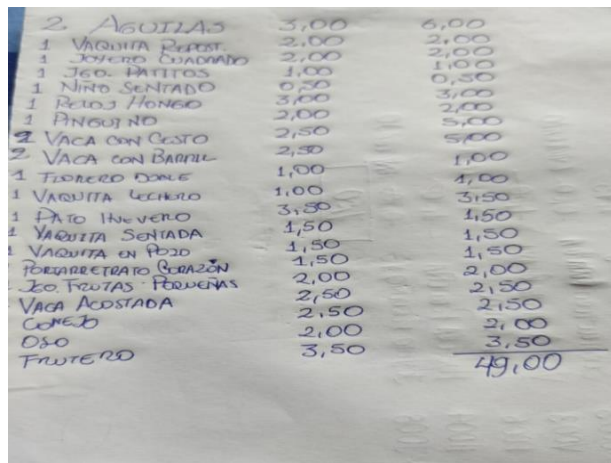 2 AGUILAS 3,00 6,00
1 VAQUITA REPOST. 2,00 2,00
1 JOYERO CUADRADO 2,00 2,00
1 JGO. PATITOS 1,00 1,00
1 NIÑO SENTADO 0,50 0,50
1 RELOJ HONGO 3,00 3,00
1 PINGUINO 2,00 2,00
2 VACA CON CESTO 2,50 5,00
2 VACA CON BARRIL 2,50 5,00
1 FLORERO DOBLE 1,00 1,00
1 VAQUITA LECHERO 1,00 1,00
1 PATO INEVERO 3,50 3,50
1 VAQUITA SENTADA 1,50 1,50
1 VAQUITA EN POZO 1,50 1,50
PORTARRETRATO CORAZÓN 1,50 1,50
JGO. FRUTAS PEQUEÑAS 2,00 2,00
VACA ACOSTADA 2,50 2,50
CONEJO 2,50 2,50
OSO 2,00 2,00
FRUTERO 3,50 3,50
49,00